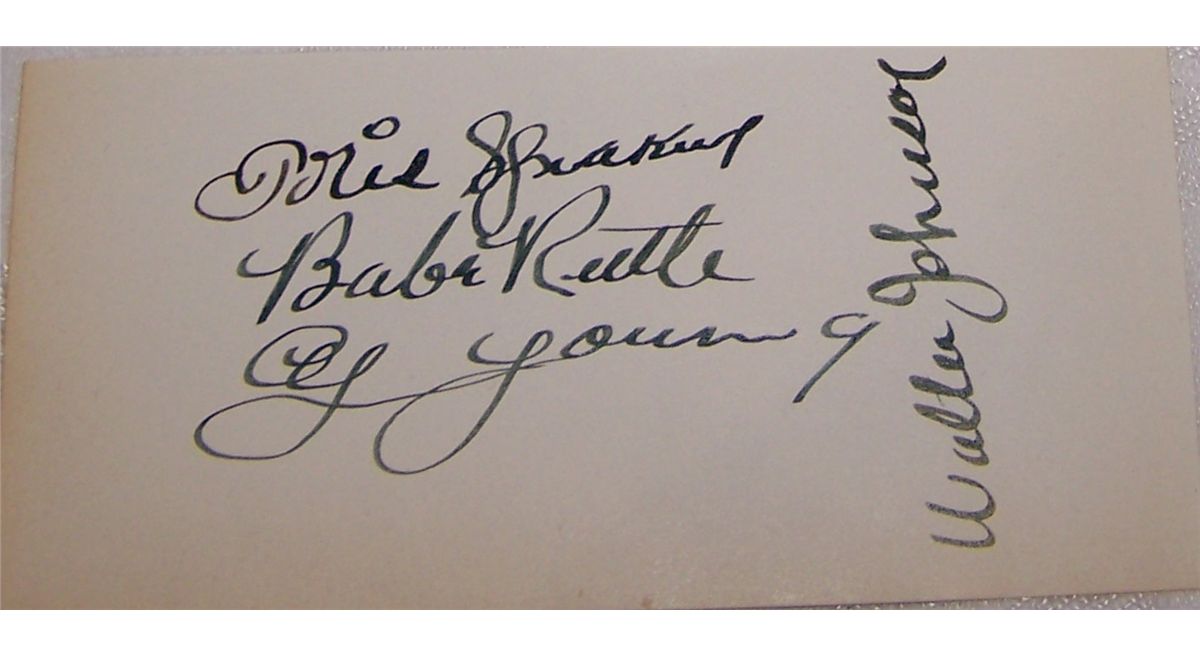 Tris Speaker
Babe Ruth
Cy Young
Walter Johnson